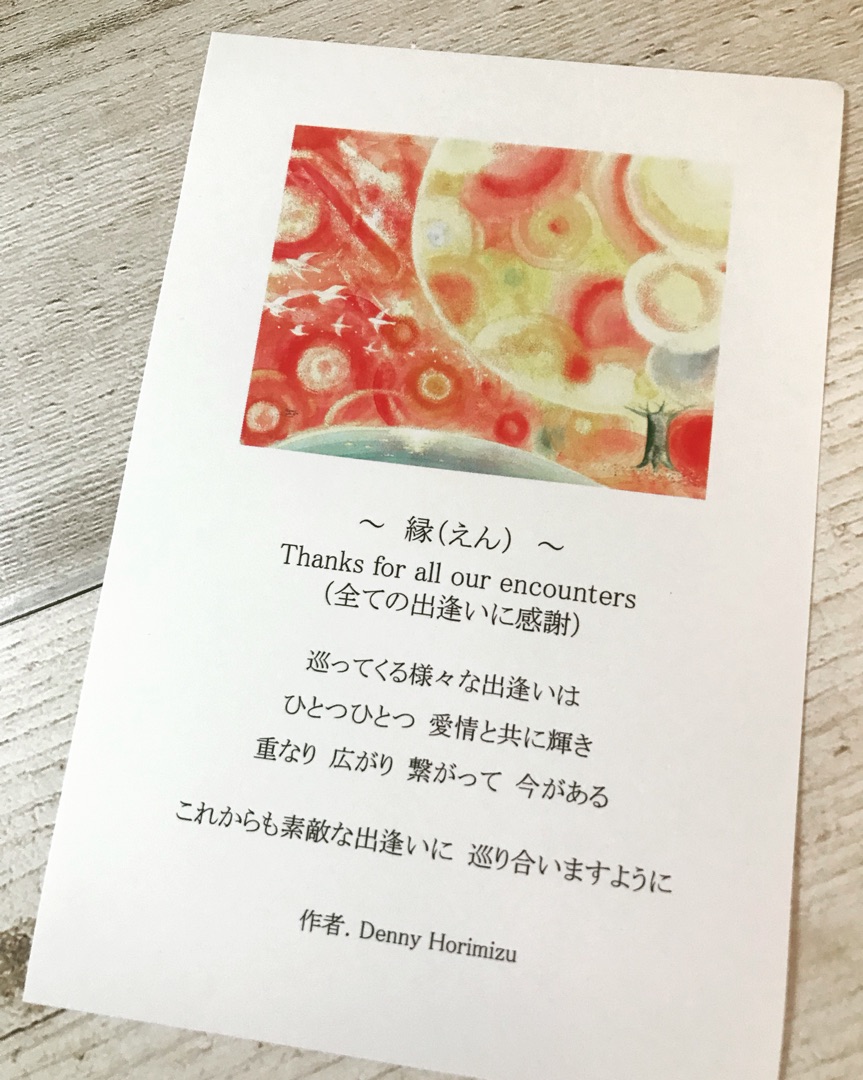 ～ 縁（えん） ～
Thanks for all our encounters
（全ての出逢いに感謝）
巡ってくる様々な出逢いは
ひとつひとつ 愛情と共に輝き
重なり 広がり 繋がって 今がある
これからも素敵な出逢いに 巡り合いますように
作者. Denny Horimizu